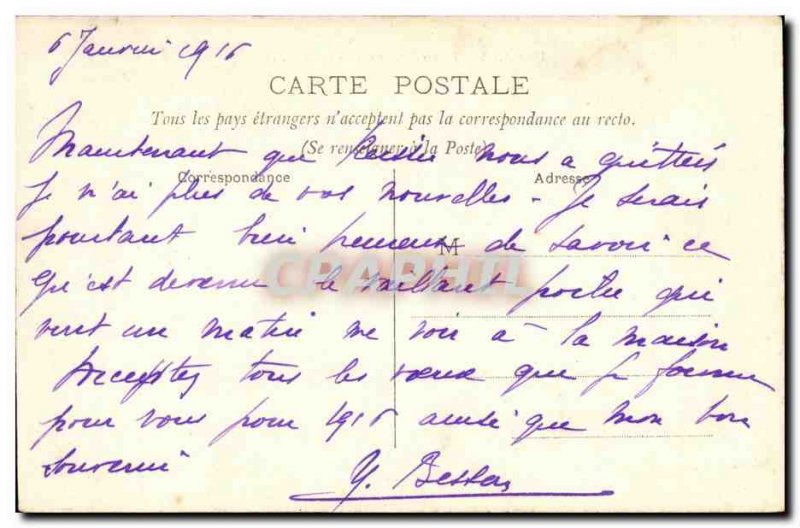 6 Janvier 1916
CARTE POSTALE
Tous les pays étrangers n'acceptent pas la correspondance au recto.
(Se renseigner à la Poste)
Maintenant que nous a quittés
Correspondance
Adresse
Je n'ai plus de vos nouvelles - Je serais
pourtant bien heureux de savoir ce
M
qu'est devenu le vaillant poète qui
CPAPHIL
vint un matin me voir à la maison
Acceptez tous les vœux que je forme
pour vous pour 1916 ainsi que mon bon
souvenir
Y.